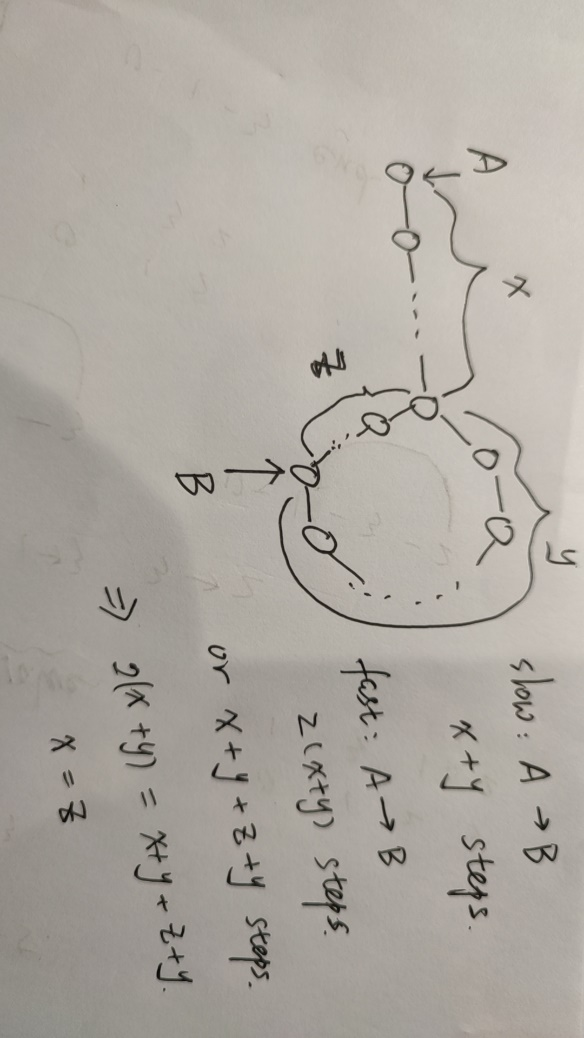 A
x
y
z
B
slow: A → B
x + y steps.
fast: A → B
2(x+y) steps.
or x + y + z + y steps.
⇒ 2(x + y) = x + y + z + y.
x = z